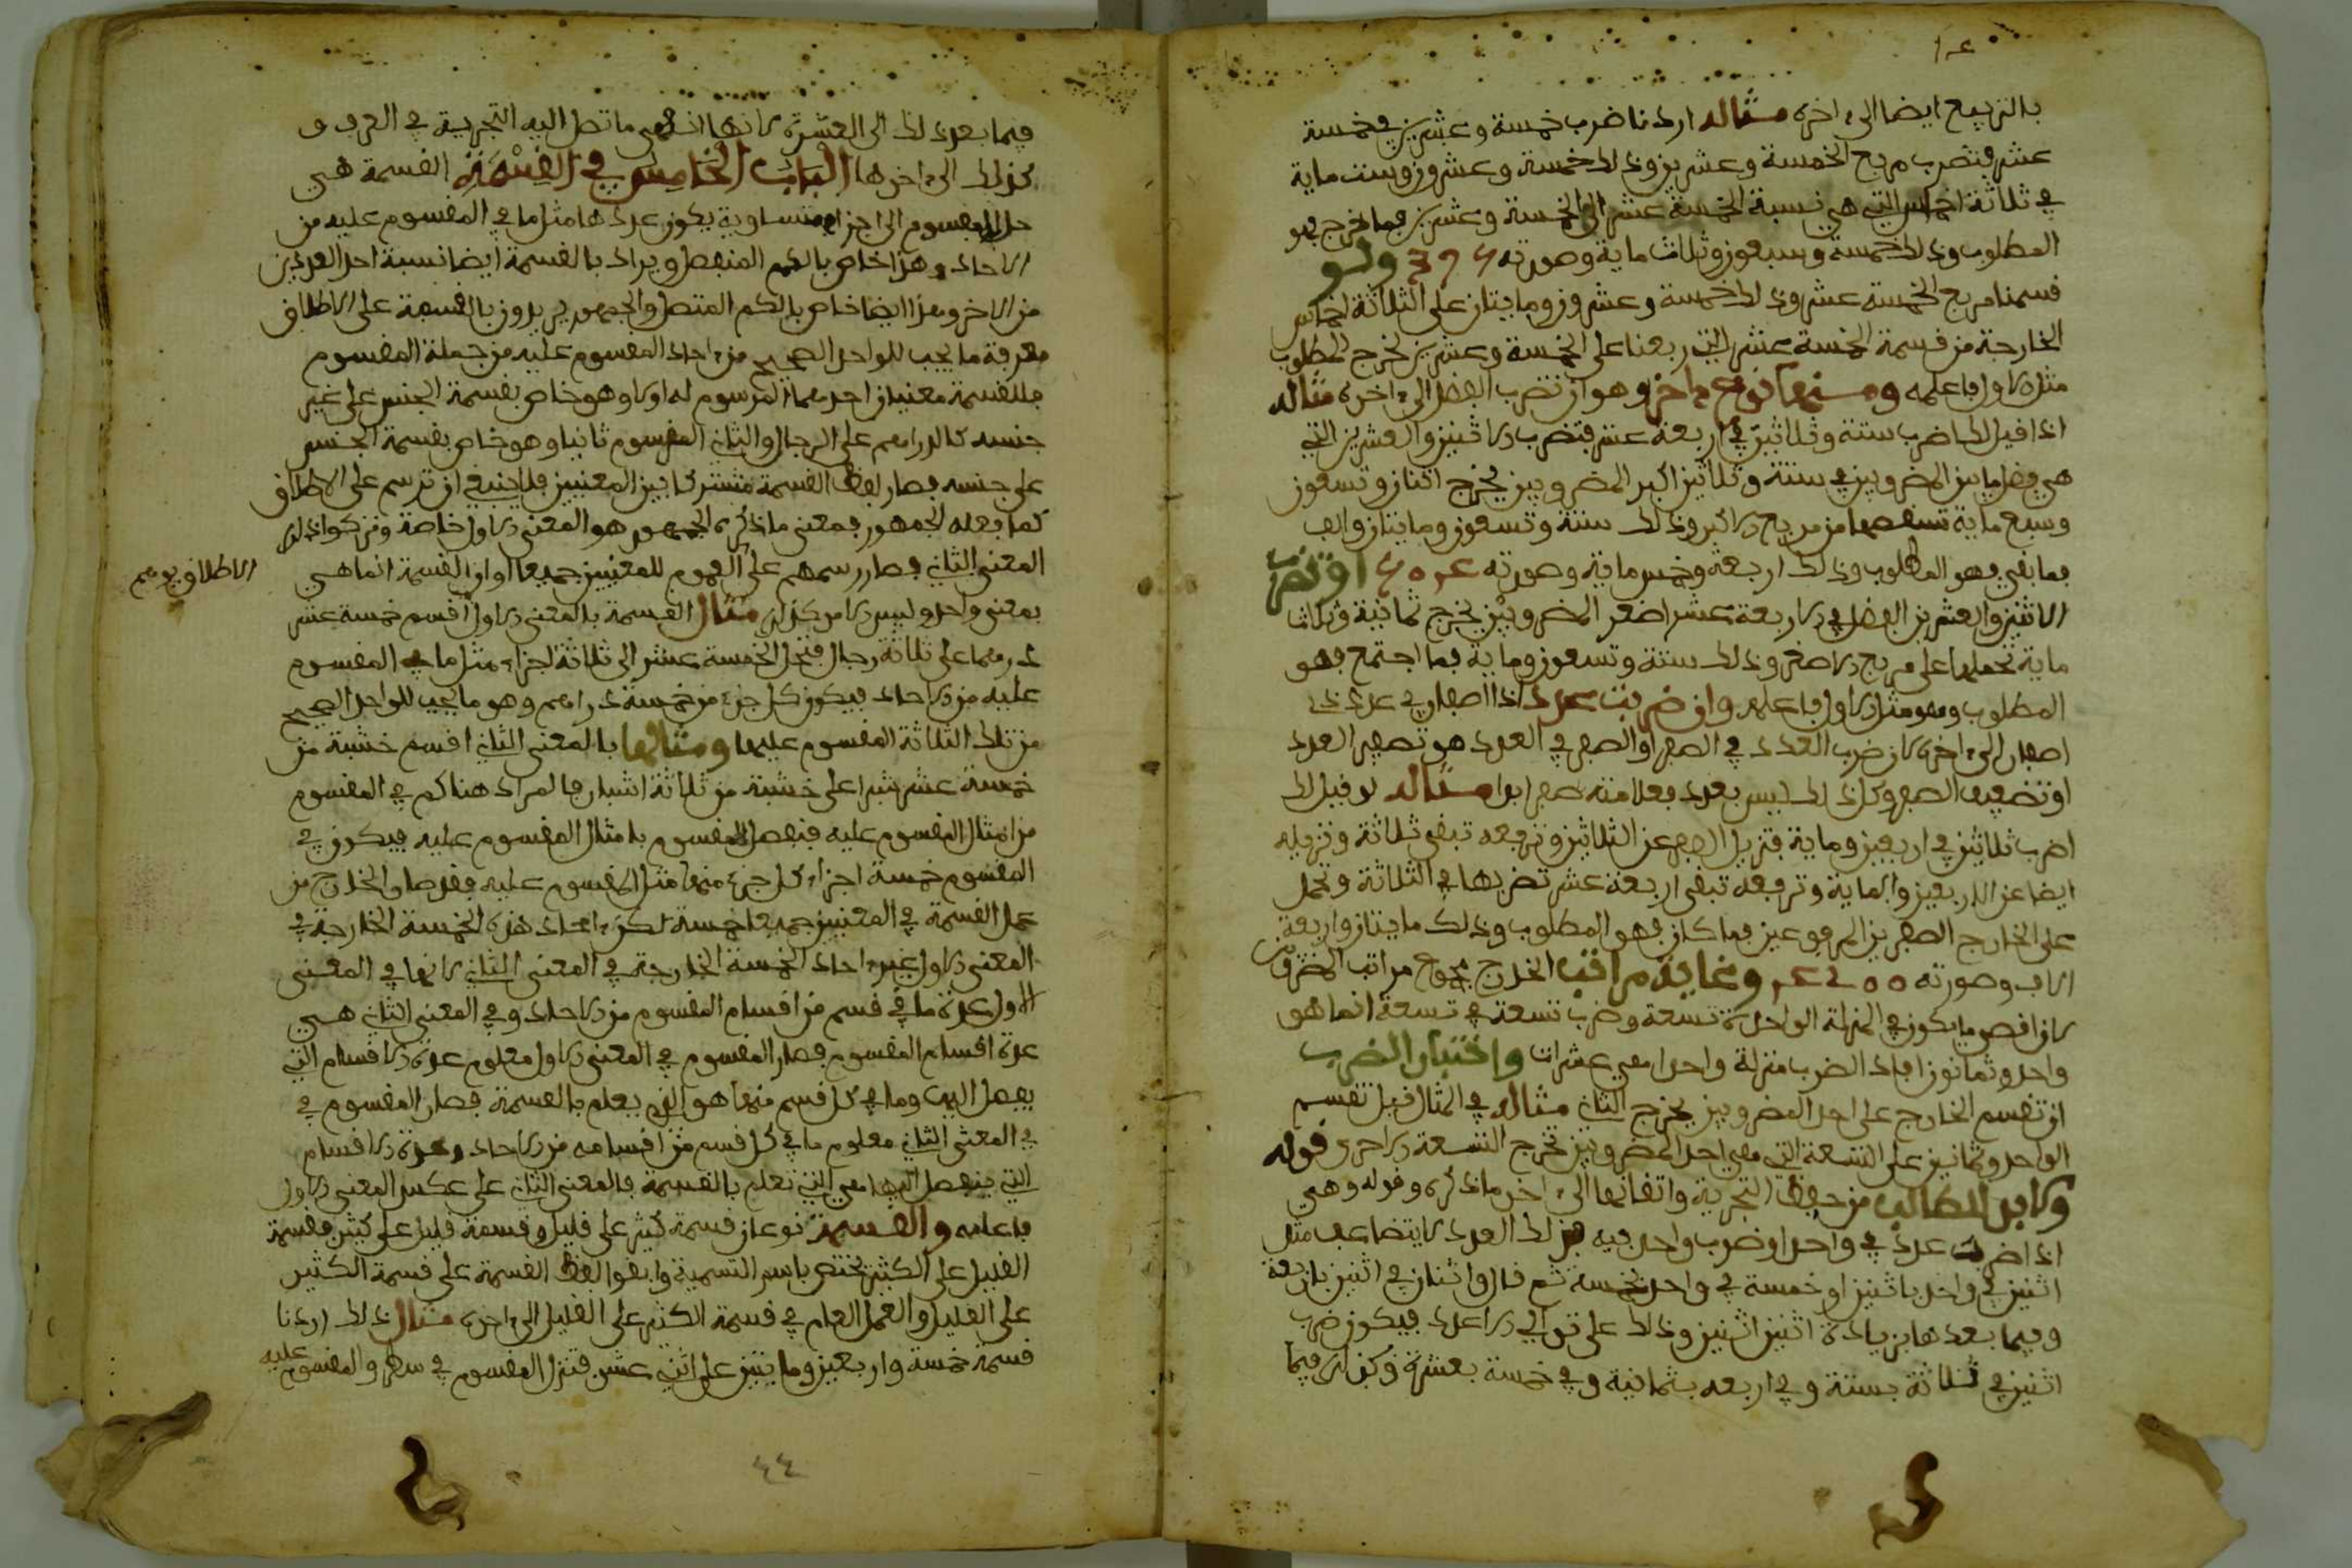 بالتربيع ايضا الى اخره مثاله اردنا ضرب خمسة وعشرين في خمسة
عشر فتضرب مربع الخمسة وعشرين وذلك خمسة وعشرون وست ماية
في ثلاثة اخماس التي هي نسبة الخمسة عشر الى الخمسة وعشرين فما خرج فهو
المطلوب وذلك خمسة وسبعون وثلاث ماية وصورته ولو
قسمنا مربع الخمسة عشر وذلك خمسة وعشرون ومايتان على الثلاثة اخماس
الخارجة من قسمة الخمسة عشر التي ربعنا على الخمسة وعشرين لخرج المطلوب
مثل الاول فاعلمه ومنها نوع اخر وهو ان تضرب الفضل الى اخره مثاله
اذا قيل لك اضرب ستة وثلاثين في اربعة عشر فتضرب الاثنين والعشرين التي
هي فضل ما بين المضروبين في ستة وثلاثين اكبر المضروبين يخرج اثنان وتسعون
وسبع ماية تسقطها من مربع الاكبر وذلك ستة وتسعون ومايتان والف
فما بقي فهو المطلوب وذلك اربعة وخمس ماية وصورته او تضرب
الاثنين والعشرين الفضل في الاربعة عشر اصغر المضروبين يخرج ثمانية وثلاث
ماية تحملها على مربع الاصغر وذلك ستة وتسعون وماية فما اجتمع فهو
المطلوب وهو مثل الاول فاعلمه وان ضربت عددا ذا اصفار في عدد ذي
اصفار الى اخره لان ضرب العدد في الصفر او الصفر في العدد هو تصفير العدد
او تضعيف الصفر وكل ذلك ليس بعدد فعلامته صفر ابدا مثاله لو قيل لك
اضرب ثلاثين في اربعين وماية فتزيل الصفر عن الثلاثين وترفعه تبقى ثلاثة وتزيله
ايضا عن الاربعين والماية وترفعه تبقى اربعة عشر تضربها في الثلاثة وتحمل
على الخارج الصفرين المرفوعين فما كان فهو المطلوب وذلك مايتان واربعة
الاف وصورته وغاية مراتب الخارج مجموع مراتب المضروبين
لان اقصى ما يكون في المنزلة الواحدة تسعة وضرب تسعة في تسعة انما هو
واحد وثمانون افاد الضرب منزلة واحدة هي عشرات واختبار الضرب
ان تقسم الخارج على احد المضروبين يخرج الثاني مثاله في المثال قبل تقسم
الواحد وثمانين على التسعة التي هي احد المضروبين تخرج التسعة الاخرى قوله
ولابد للطالب من حفظ التجربة واتقانها الى اخر ما ذكره وقوله وهي
اذا ضربت عدد في واحد او ضرب واحد فيه فذلك العدد لا يتضاعف مثل
اثنين في واحد باثنين او خمسة في واحد بخمسة ثم قال واثنان في اثنين باربعة
وفيما بعدها بزيادة اثنين اثنين وذلك على توالي الاعداد فيكون ضرب
اثنين في ثلاثة بستة وفي اربعة بثمانية وفي خمسة بعشرة وكذلك فيما
فيما بعد ذلك الى العشرة لانها اقصى ما تصل اليه التجربة في العرف و
كذلك الى اخرها الباب الخامس في القسمة القسمة هي
حل المقسوم الى اجزاء متساوية يكون عددها مثل ما في المقسوم عليه من
الاحاد وهذا خاص بالكم المنفصل ويراد بالقسمة ايضا نسبة احد العددين
من الاخر وهذا ايضا خاص بالكم المتصل والجمهور يريدون بالقسمة على الاطلاق
معرفة ما يجب للواحد الصحيح من احاد المقسوم عليه من جملة المقسوم
فللقسمة معنيان احدهما المرسوم له اولا وهو خاص بقسمة الجنس على غير
جنسه كالدراهم على الرجال والثاني المرسوم ثانيا وهو خاص بقسمة الجنس
على جنسه فصار لفظ القسمة مشتركا بين المعنيين فلا ينبغي ان ترسم على الاطلاق
كما فعله الجمهور فمعنى ما ذكره الجمهور هو المعنى الاول خاصة وتركوا ذكر
المعنى الثاني فصار رسمهم على العموم للمعنيين جميعا اوان القسمة انما هي
الاطلاق يوهم
بمعنى واحد وليس الامر كذلك مثال القسمة بالمعنى الاول اقسم خمسة عشر
درهما على ثلاثة رجال فتحل الخمسة عشر الى ثلاثة اجزاء مثل ما في المقسوم
عليه من الاحاد فيكون كل جزء من خمسة دراهم وهو ما يجب للواحد الصحيح
من تلك الثلاثة المقسوم عليها ومثالها بالمعنى الثاني اقسم خشبة من
خمسة عشر شبرا على خشبة من ثلاثة اشبار فالمراد هنا كم في المقسوم
من امثال المقسوم عليه فنفصل المقسوم بامثال المقسوم عليه فيكون في
المقسوم خمسة اجزاء كل جزء منها مثل المقسوم عليه فقد صار الخارج من
عمل القسمة في المعنيين جميعا خمسة لكن احاد هذه الخمسة الخارجة في
المعنى الاول غير احاد الخمسة الخارجة في المعنى الثاني لانها في المعنى
الاول عدة ما في قسم من اقسام المقسوم من الاحاد وفي المعنى الثاني هي
عدة اقسام المقسوم فصار المقسوم في المعنى الاول معلوم عدة الاقسام التي
يفصل اليها وما في كل قسم منها هو الذي يعلم بالقسمة فصار المقسوم في
في المعنى الثاني معلوم ما في كل قسم من اقسامه من الاحاد وعدة الاقسام
التي ينفصل اليها هي التي تعلم بالقسمة فالمعنى الثاني على عكس المعنى الاول
فاعلمه والقسمة نوعان قسمة كثير على قليل وقسمة قليل على كثير فقسمة
القليل على الكثير يختص باسم التسمية وابقوا لفظ القسمة على قسمة الكثير
على القليل والعمل العام في قسمة الكثير على القليل الى اخره مثال ذلك اردنا
قسمة خمسة واربعين ومايتين على اثني عشر فتنزل المقسوم في سطر والمقسوم عليه
٤٤